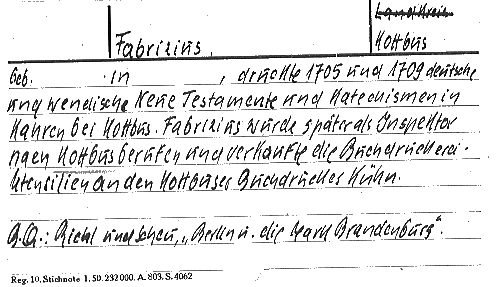 Landkreis
Fabrizius,
Kottbus
Geb. in , druckte 1705 und 1709 deutsche
und wendische Neue Testamente und Katechismen in
Kahren bei Kottbus. Fabrizius wurde später als Inspektor
nach Kottbus berufen und verkaufte die Buchdruckerei-
utensilien an den Kottbuser Buchdrucker Kühn.
B.Q.: Riehl und Scheu, „Berlin u. die Mark Brandenburg".
Reg. 10. Stichnote 1. 50. 232000. A. 803. S. 4062